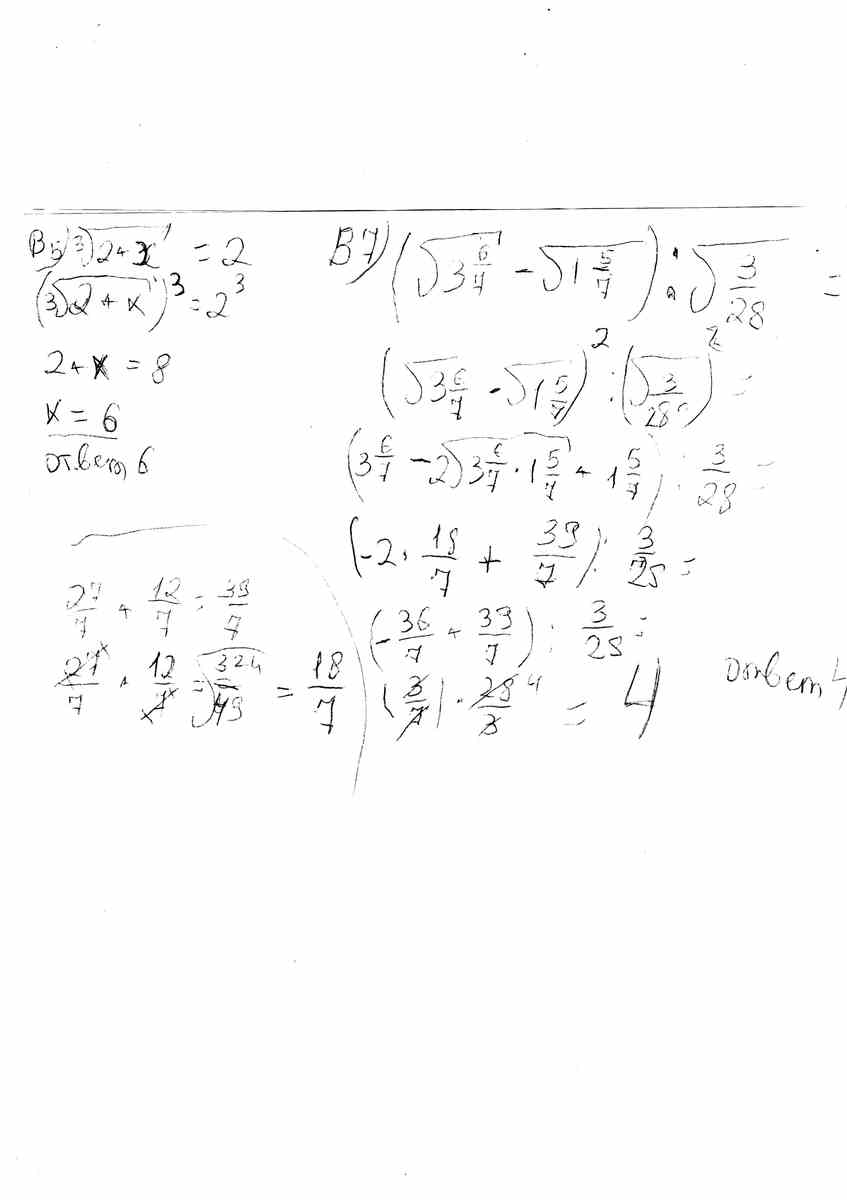 В5) ∛(2+x) = 2
(∛(2+x))³ = 2³
2+x = 8
x = 6
ответ 6
27/7 + 12/7 = 39/7
27/7 · 12/7 = √(324/49) = 18/7
В7) (√(3 6/7) - √(1 5/7)) : √(3/28) =
(√(3 6/7) - √(1 5/7))² : (√(3/28))² =
(3 6/7 - 2√(3 6/7 · 1 5/7) + 1 5/7) : 3/28 =
(-2 · 18/7 + 39/7) : 3/28 =
(-36/7 + 39/7) : 3/28 =
(3/7) · 28/3 4 = 4
ответ 4